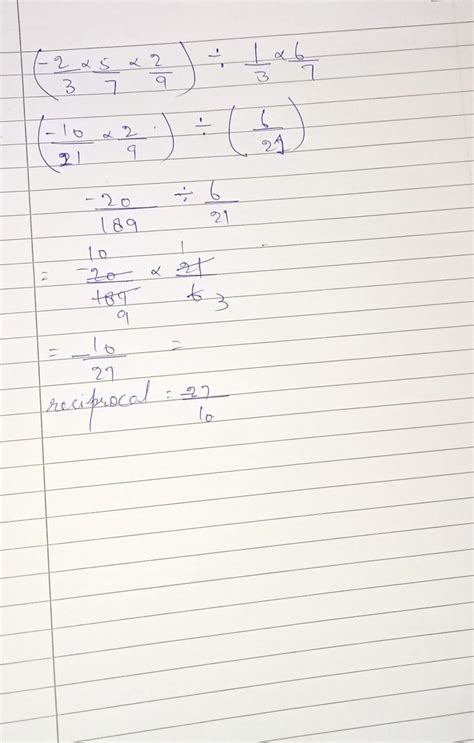 (-2/3 × 5/7 × 2/9) ÷ 1/3 × 6/7
(-10/21 × 2/9) ÷ (6/21)
-20/189 ÷ 6/21
10 1
= -20/189 × 21/6
9 3
= -10/27 =
reciprocal = -27/10